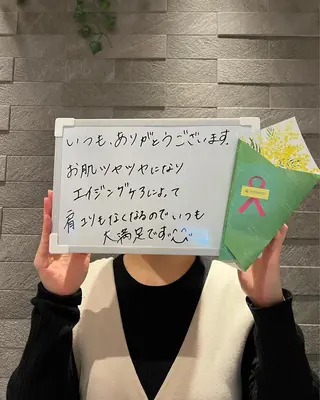 いつも、ありがとうございます。
お肌ツヤツヤになり
エイジングケアによって
肩こりもなくなるのでいつも
大満足です